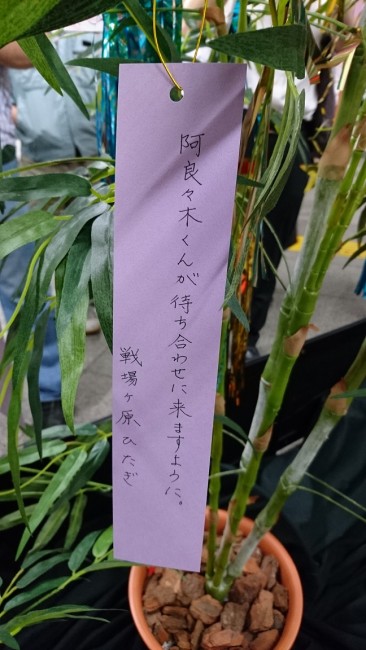 阿良々木くんが待ち合わせに来ますように。
戦場ヶ原ひたぎ